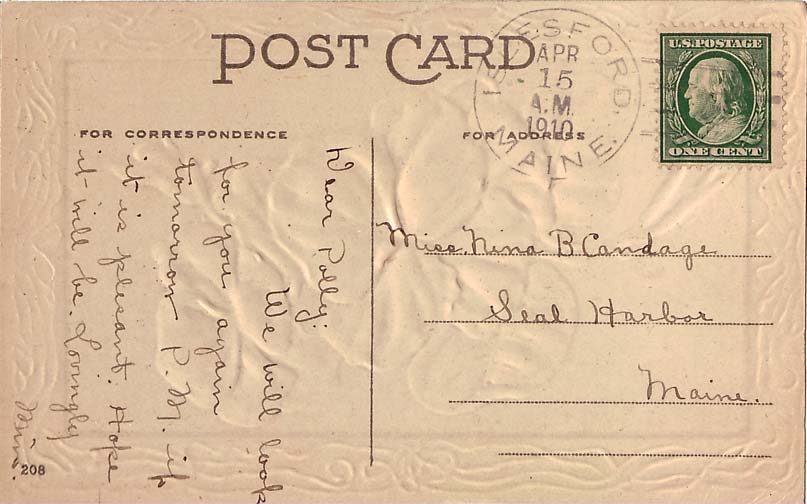 POST CARD
ISLESFORD,
MAINE
APR
15
A.M.
1910
U.S. POSTAGE
ONE CENT
FOR CORRESPONDENCE
FOR ADDRESS
Dear Polly:
We will look
for you again
tomorrow P.M. if
it is plesant. Hope
it will be. Lovingly
Min.
Miss Nina B Candage
Seal Harbor
Maine.
208